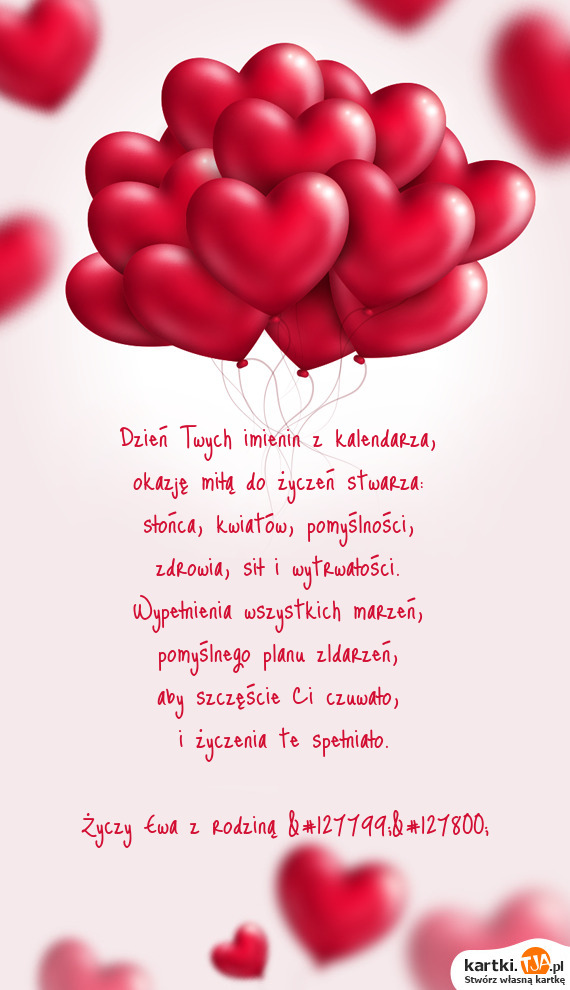 Dzień Twych imienin z kalendarza,
okazję miłą do życzeń stwarza:
słońca, kwiatów, pomyślności,
zdrowia, sił i wytrwałości.
Wypełnienia wszystkich marzeń,
pomyślnego planu zldarzeń,
aby szczęście Ci czuwało,
i życzenia te spełniało.
Życzy Ewa z rodziną &#127799;&#127800;
kartki.TJA.pl
Stwórz własną kartkę